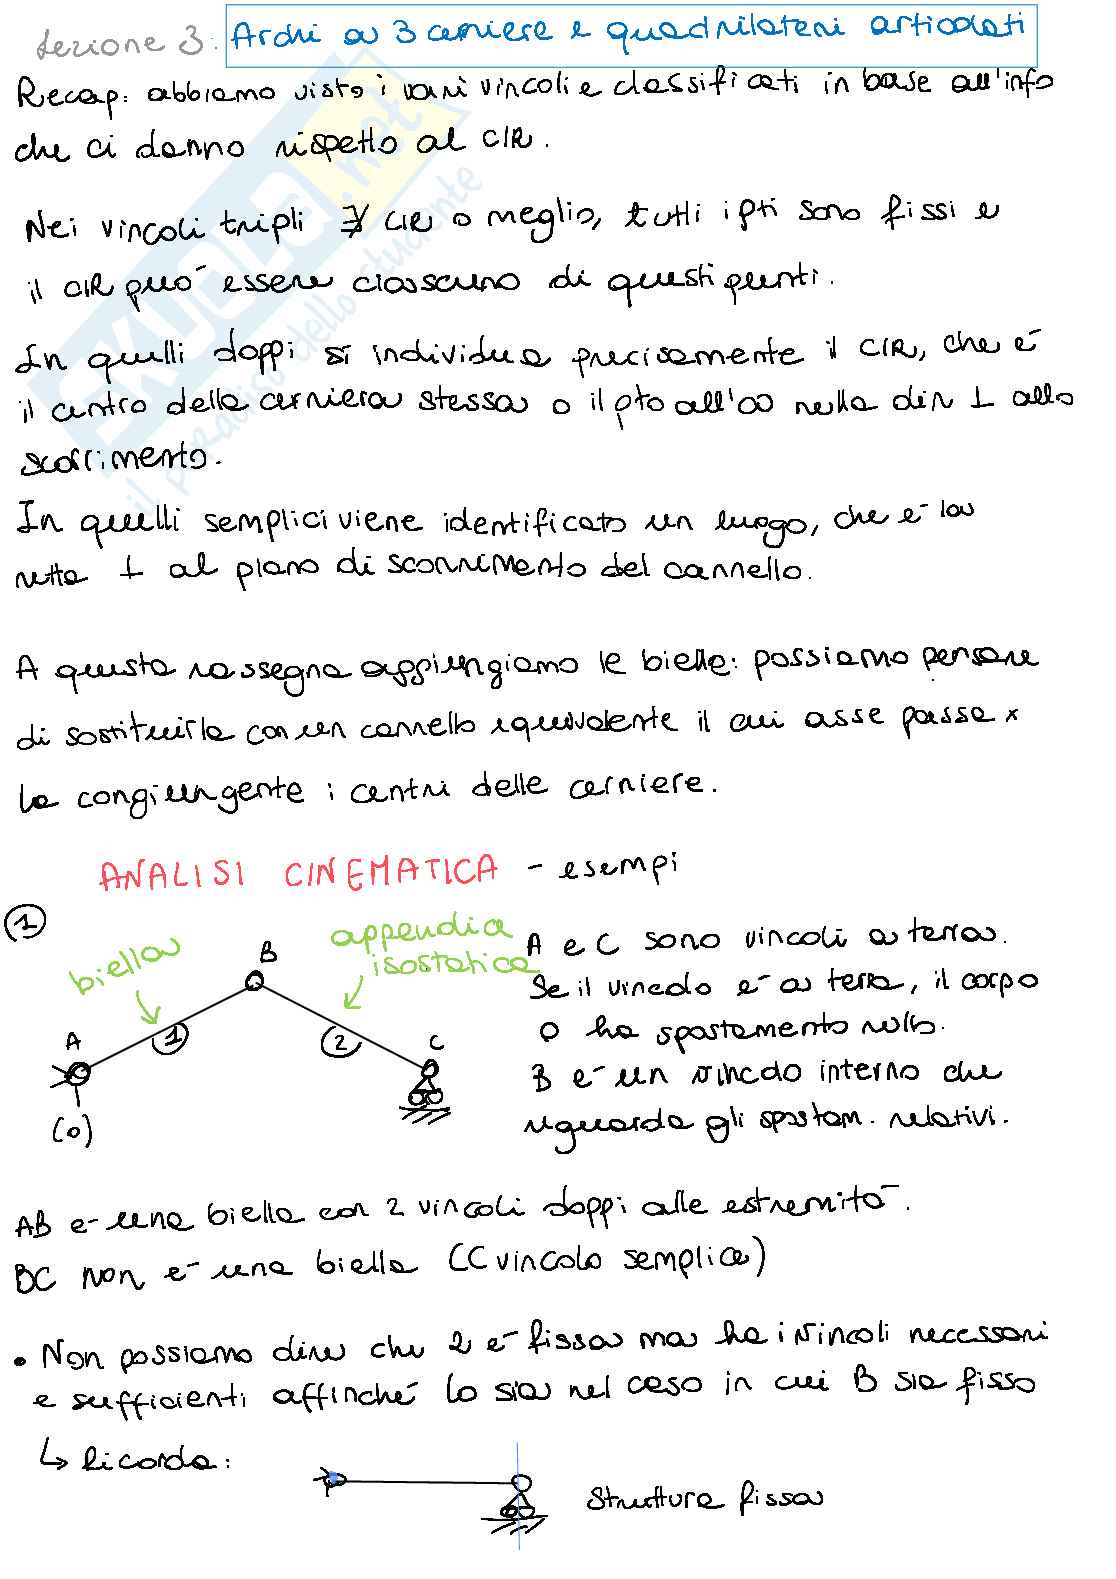 Lezione 3: Archi a 3 cerniere e quadrilateri articolati
Recap: abbiamo visto i vari vincoli e classificati in base all'info
che ci danno rispetto al CIR.
Nei vincoli tripli ∄ CIR o meglio, tutti i pti sono fissi e
il CIR può essere ciascuno di questi punti.
In quelli doppi si individua precisamente il CIR, che è
il centro della cerniera stessa o il pto all'∞ nella dir ⊥ allo
scorrimento.
In quelli semplici viene identificato un luogo, che è la
retta ⊥ al piano di scorrimento del carrello.
A questa rassegna aggiungiamo le bielle: possiamo pensare
di sostituirla con un carrello equivalente il cui asse passa x
la congiungente i centri delle cerniere.
ANALISI CINEMATICA - esempi
1
biella
appendice
isostatica
A B C
1 2
(0)
A e C sono vincoli a terra.
Se il vincolo è a terra, il corpo
0 ha spostamento nullo.
B è un vincolo interno che
riguarda gli spostam. relativi.
AB è una biella con 2 vincoli doppi alle estremità.
BC non è una biella (C vincolo semplice)
• Non possiamo dire che 2 è fissa ma ha i vincoli necessari
e sufficienti affinché lo sia nel caso in cui B sia fisso
↳ Ricorda:
Struttura fissa
SKUOLA.net
il paradiso dello studente